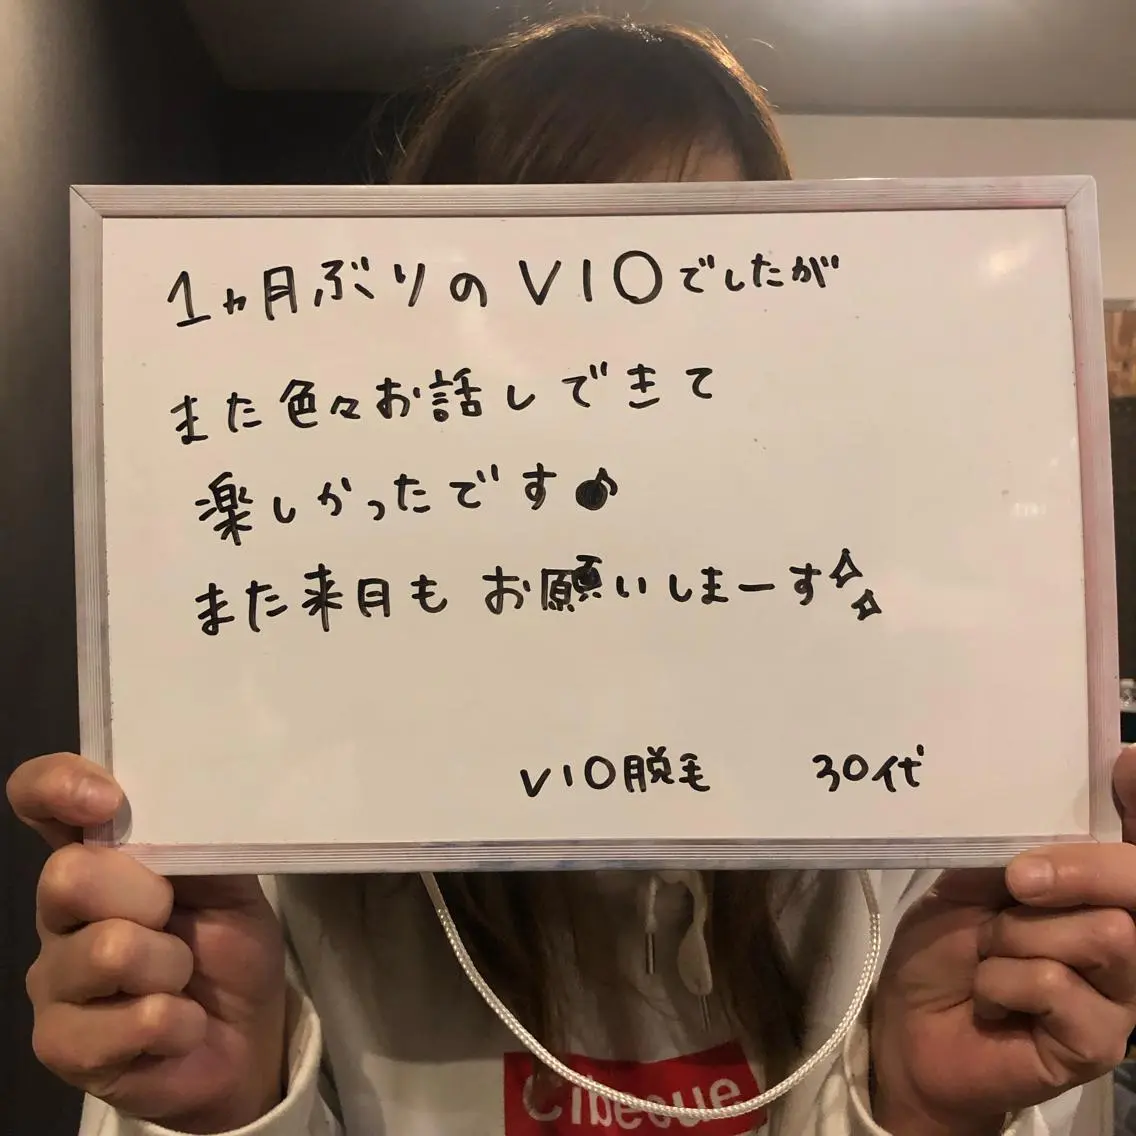 1ヵ月ぶりのVIOでしたが
また色々お話しできて
楽しかったです♪
また来月もお願いしまーす✧✧
VIO脱毛 30代
Cibeque